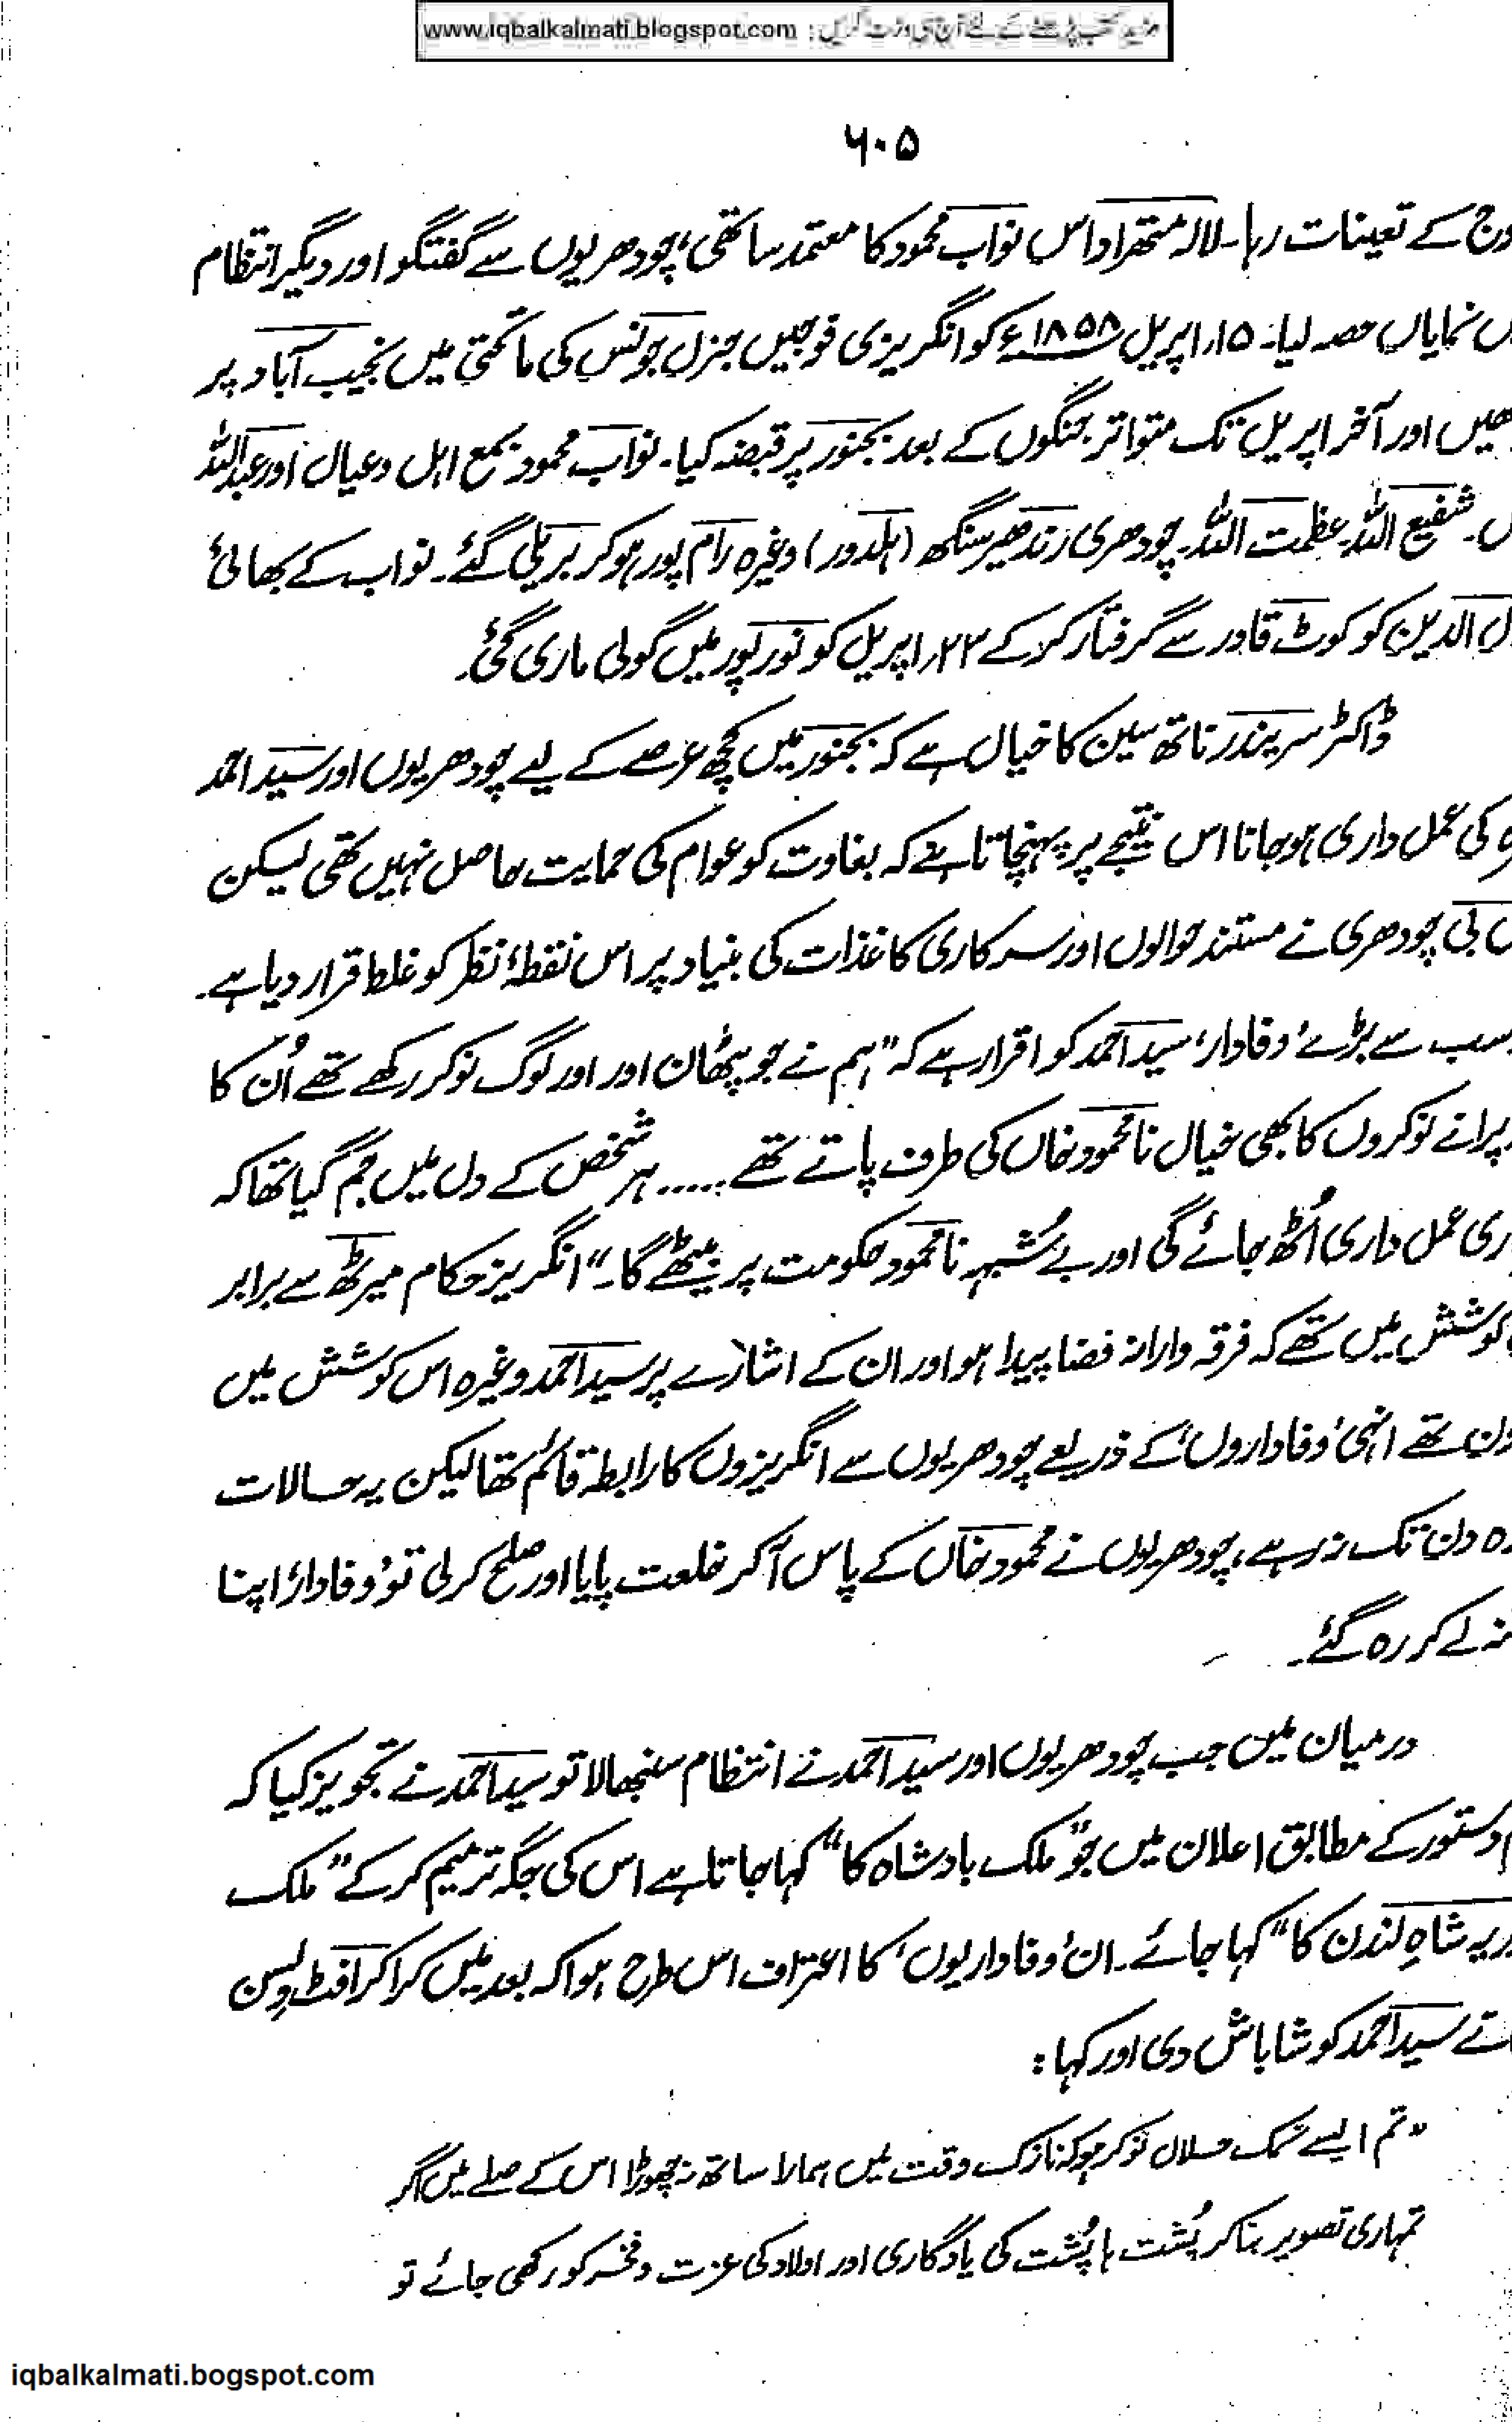 www.iqbalkalmati.blogspot.com : مزید کتب پڑھنے کے لئے آج ہی وزٹ کریں
۶۰۵
کے تعینات رہا۔ لالہ متھرا داس نواب محمود کا معتمد ساتھی، چودھریوں سے گفتگو اور دیگر انتظام
نمایاں حصہ لیا۔ ۱۵؍ اپریل ۱۸۵۸ء کو انگریزی فوجیں جنرل جونس کی ماتحتی میں نجیب آباد پر
اور آخر اپریل تک متواتر جنگوں کے بعد بجنور پر قبضہ کیا۔ نواب محمود بمع اہل و عیال اور عبداللہ
۔ شفیع اللہ۔ عظمت اللہ۔ چودھری رندھیر سنگھ (ہلدور) وغیرہ رام پور ہو کر بریلی گئے۔ نواب کے بھائی
الدین کو کوٹ قادر سے گرفتار کر کے ۲۳؍ اپریل کو نور پور میں گولی ماری گئی۔
ڈاکٹر سریندر ناتھ سین کا خیال ہے کہ بجنور میں کچھ عرصے کے لیے چودھریوں اور سید احمد
کی عمل داری ہو جانا اس نتیجے پر پہنچاتا ہے کہ بغاوت کو عوام کی حمایت حاصل نہیں تھی لیکن
بی چودھری نے مستند حوالوں اور سرکاری کاغذات کی بنیاد پر اس نقطۂ نظر کو غلط قرار دیا ہے۔
سب سے بڑے ’وفادار‘ سید احمد کو اقرار ہے کہ "ہم نے جو پٹھان اور اور لوگ نوکر رکھے تھے اُن کا
پرانے نوکروں کا بھی خیال نامحمود خاں کی طرف پاتے تھے ..... ہر شخص کے دل میں جم گیا تھا کہ
ری عمل داری اُٹھ جائے گی اور بے شُبہ نامحمود حکومت پر بیٹھے گا۔" انگریز حکام میرٹھ سے برابر
کوشش میں تھے کہ فرقہ وارانہ فضا پیدا ہو اور ان کے اشارے پر سید احمد وغیرہ اس کوشش میں
تھے انہی ’وفاداروں‘ کے ذریعے چودھریوں سے انگریزوں کا رابطہ قائم تھا لیکن یہ حالات
دن تک نہ رہے، چودھریوں نے محمود خاں کے پاس آ کر خلعت پایا اور صلح کر لی تو ’وفادار‘ اپنا
لے کر رہ گئے۔
درمیان میں جب چودھریوں اور سید احمد نے انتظام سنبھالا تو سید احمد نے تجویز کیا کہ
دستور کے مطابق اعلان میں جو "ملک بادشاہ کا" کہا جاتا ہے اس کی جگہ ترمیم کر کے "ملک
شاہِ لندن کا" کہا جائے۔ ان ’وفاداریوں‘ کا اعتراف اس طرح ہوا کہ بعد میں کراکرافٹ ولسن
سید احمد کو شاباش دی اور کہا:
"تم ایسے نمک حلال نوکر ہو کہ نازک وقت میں ہمارا ساتھ نہ چھوڑا اس کے صلے میں اگر
تمہاری تصویر بنا کر پُشت ہا پُشت کی یادگاری اور اولاد کی عزت و فخر کو رکھی جائے تو
iqbalkalmati.bogspot.com